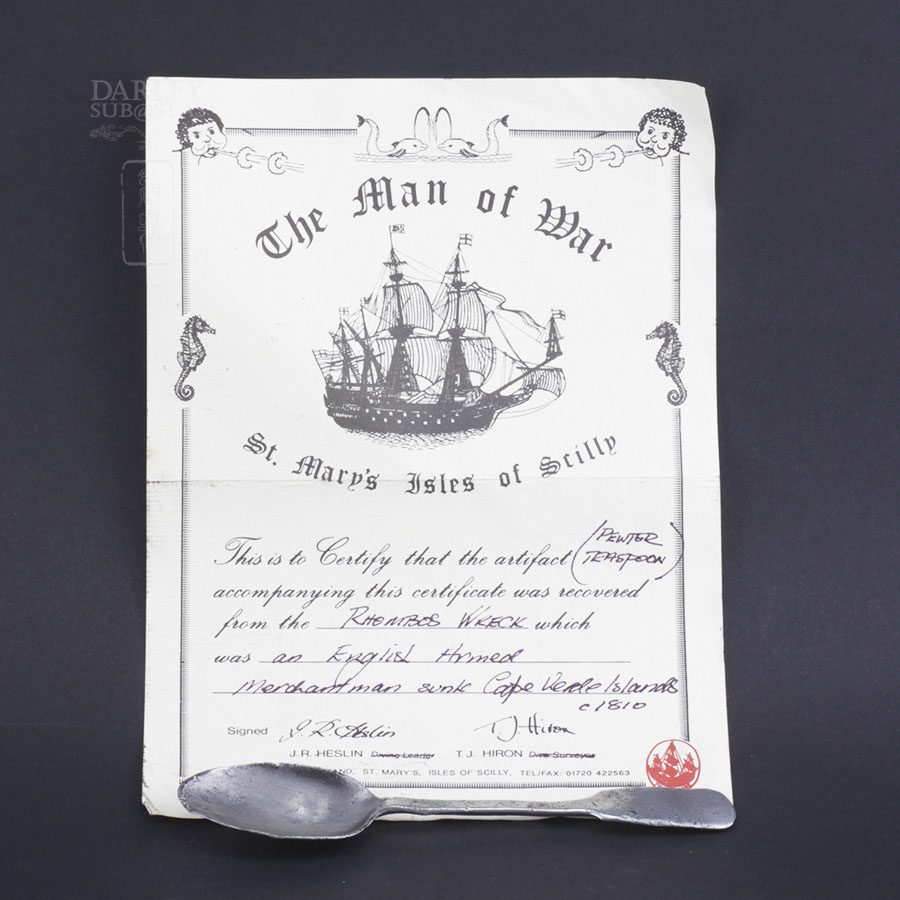 The Man of War
St. Mary's Isles of Scilly
(PEWTER
TEASPOON)
This is to Certify that the artifact
accompanying this certificate was recovered
from the RHOMBOS WRECK which
was an English Armed
Merchantman sunk Cape Verde Islands
c1810
Signed J.R. Heslin T.J. Hiron
J.R. HESLIN Diving Leader T.J. HIRON Dive Surveyor
ST. MARY'S, ISLES OF SCILLY, TEL/FAX: 01720 422563